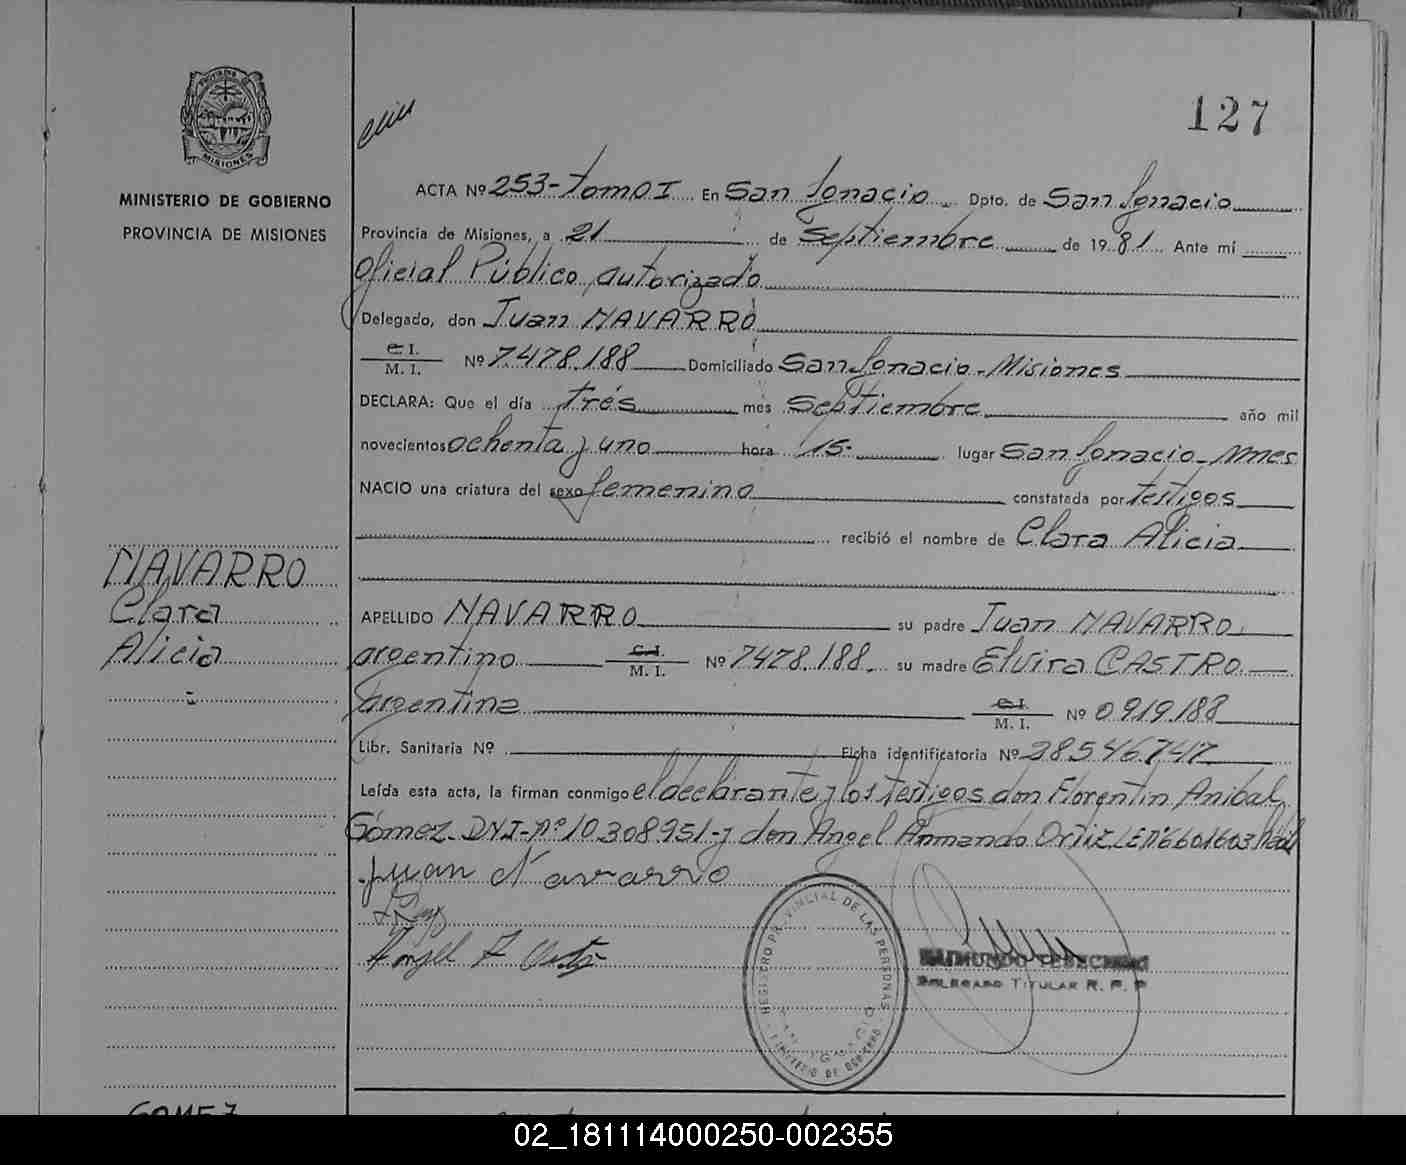 PROVINCIA DE
MISIONES
MINISTERIO DE GOBIERNO
PROVINCIA DE MISIONES
127
ACTA Nº 253-Tomo I En San Ignacio Dpto. de San Ignacio
Provincia de Misiones, a 21 de Septiembre de 1981 Ante mí
Oficial Público autorizado
Delegado, don Juan NAVARRO
C. I.
M. I. Nº 7.478.188 Domiciliado San Ignacio - Misiones
DECLARA: Que el día trés mes Septiembre año mil
novecientos ochenta y uno hora 15- lugar San Ignacio - Mnes
NACIO una criatura del sexo femenino constatada por testigos
recibió el nombre de Clara Alicia
NAVARRO
Clara
Alicia
APELLIDO NAVARRO su padre Juan NAVARRO
argentino C. I. M. I. Nº 7478.188. su madre Elvira CASTRO
argentina C. I. M. I. Nº 0919.188
Libr. Sanitaria Nº Ficha identificatoria Nº 28546.747
Leída esta acta, la firman conmigo el declarante y los testigos don Florentín Anibal
Gómez - DNI-nº 10.308.951- y don Angel Armando Ortiz LE nº 6601603
Juan Navarro
Angel A Ortiz
REGISTRO PROVINCIAL DE LAS PERSONAS
SAN IGNACIO
MINISTERIO DE GOBIERNO
RAIMUNDO
DELEGADO TITULAR R. P. P
GOMEZ
02_181114000250-002355